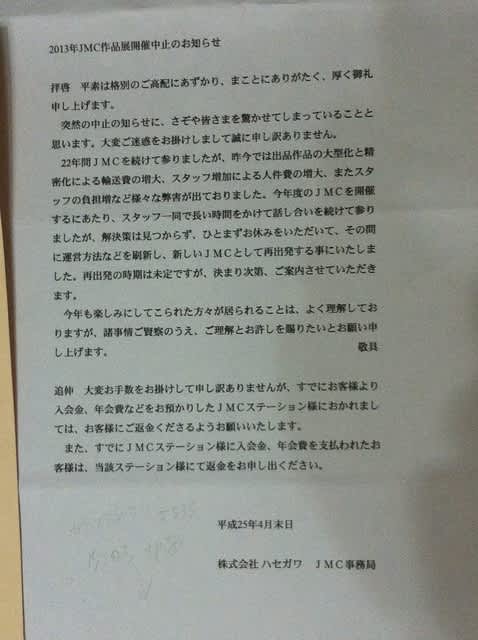 2013年JMC作品展開催中止のお知らせ
拝啓　平素は格別のご高配にあずかり、まことにありがたく、厚く御礼
申し上げます。
突然の中止の知らせに、さぞや皆さまを驚かせてしまっていることと
思います。大変ご迷惑をお掛けしまして誠に申し訳ありません。
22年間ＪＭＣを続けて参りましたが、昨今では出品作品の大型化と精
密化による輸送費の増大、スタッフ増加による人件費の増大、またスタ
ッフの負担増など様々な弊害が出ておりました。今年度のＪＭＣを開催
するにあたり、スタッフ一同で長い時間をかけて話し合いを続けて参り
ましたが、解決策は見つからず、ひとまずお休みをいただいて、その間
に運営方法などを刷新し、新しいＪＭＣとして再出発する事にいたしま
した。再出発の時期は未定ですが、決まり次第、ご案内させていただき
ます。
今年も楽しみにしてこられた方々が居られることは、よく理解してお
りますが、諸事情ご賢察のうえ、ご理解とお許しを賜りたいとお願い申
し上げます。　敬具
追伸　大変お手数をお掛けして申し訳ありませんが、すでにお客様より
入会金、年会費などをお預かりしたＪＭＣステーション様におかれまし
ては、お客様にご返金くださるようお願いいたします。
また、すでにＪＭＣステーション様に入会金、年会費を支払われたお
客様は、当該ステーション様にて返金をお申し出ください。
平成25年4月末日
株式会社 ハセガワ　ＪＭＣ事務局